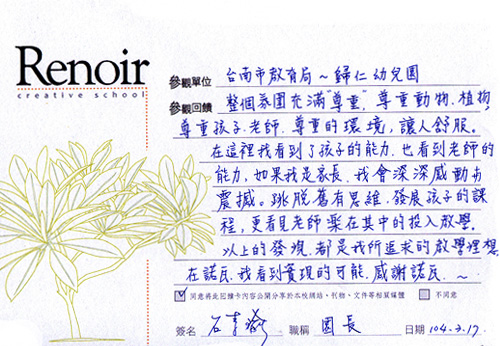 Renoir
creative school
參觀單位 台南市教育局~歸仁幼兒園
參觀回饋 整個氛圍充滿"尊重",尊重動物.植物,
尊重孩子.老師.尊重的環境,讓人舒服。
在這裡我看到了孩子的能力.也看到老師的
能力,如果我是家長.我會深深感動与
震撼。跳脫舊有思維.發展孩子的課
程,更看見老師樂在其中的投入教學.
以上的發現.都是我所追求的教學理想.
在諾瓦.我看到實現的可能.感謝諾瓦.~
同意將此記錄卡內容公開分享於本校網站、刊物、文件等相關媒體 不同意
簽名 石 職稱 園長 日期 104.7.17.